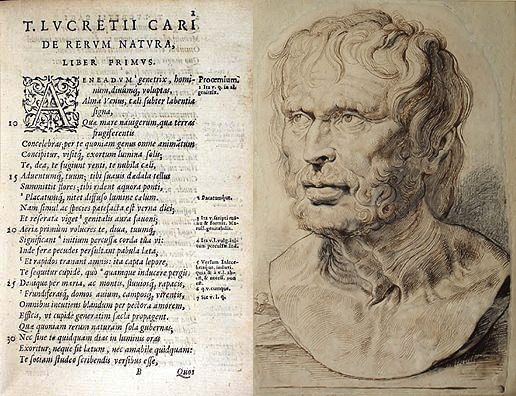 1
T. LVCRETII CARI
DE RERVM NATVRA,
LIBER PRIMVS.
AENEADVM' genetrix, homi-
num, diuumq, voluptas,
Alma Venus, cæli subter labentia
signa,
10 Quæ mare nauigerum, quæ terras
frugiferenteis
Concelebras; per te quoniam genus omne animãtum
Concipitur, visitq, exortum lumina solis;
Te, dea, te fugiunt venti, te nubila cæli,
15 Aduentumq, tuum; tibi suaueis dædala tellus
Summittit flores; tibi rident æquora ponti,
² Placatumq, nitet diffuso lumine cælum.
Nam simul ac species patefacta est verna diei;
Et reserata viget ³ genitalis aura fauoni;
20 Aeriæ primum volucres te, diua, tuumq,
Significant ⁴ initium percussæ corda tua vi:
Inde feræ pecudes persultant pabula læta,
⁵ Et rapidos tranant amnis: ita capta lepore,
Te sequitur cupide, quo ⁶ quamque inducere pergis.
25 Denique per maria, ac montis, fluuiosq, rapacis,
⁷ Frundiferasq, domos auium, camposq, virentis,
Omnibus incutiens blandum per pectora amorem,
Efficis, vt cupide generatim sæcla propagent.
Quæ quoniam rerum naturam sola gubernas;
30 Nec sine te quidquam dias in luminis oras
Exoritur; neque fit lætum, nec amabile quidquam:
Te sociam studeo scribendis versibus esse,
B Quos
Proœmium.
2 Pacatumque.
6 q.v. cumque.